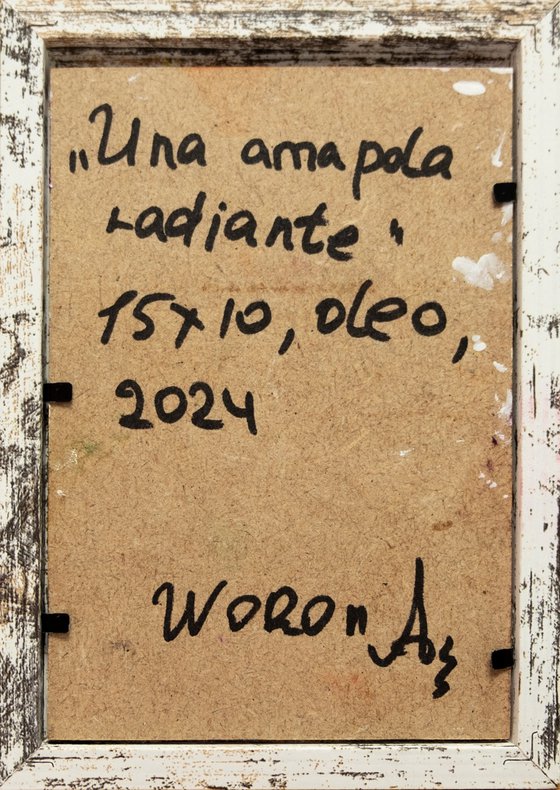 „Una amapola
radiante"
15x10, oleo,
2024
WORON A